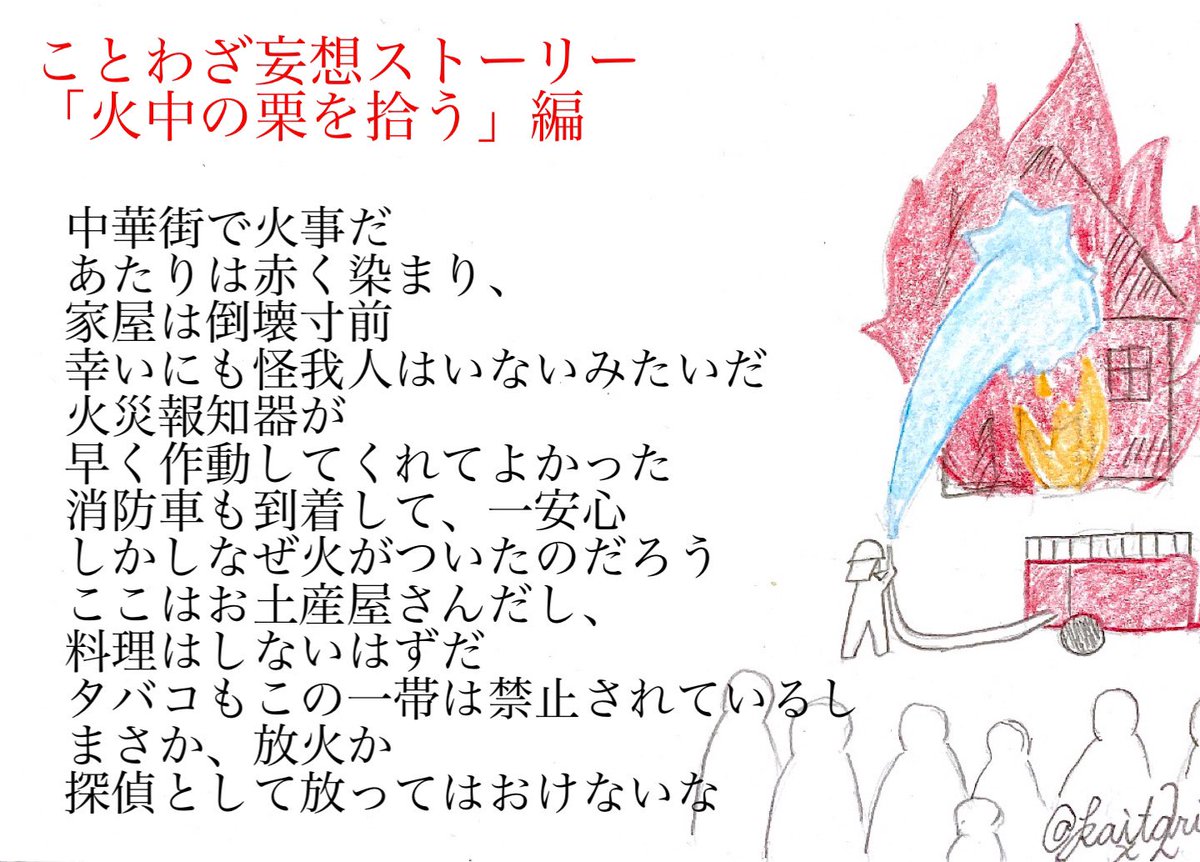 ことわざ妄想ストーリー
「火中の栗を拾う」編
中華街で火事だ
あたりは赤く染まり、
家屋は倒壊寸前
幸いにも怪我人はいないみたいだ
火災報知器が
早く作動してくれてよかった
消防車も到着して、一安心
しかしなぜ火がついたのだろう
ここはお土産屋さんだし、
料理はしないはずだ
タバコもこの一帯は禁止されているし
まさか、放火か
探偵として放ってはおけないな